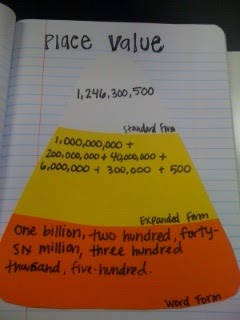 Place Value
1,246,300,500
Standard Form
1,000,000,000 +
200,000,000 + 40,000,000 +
6,000,000 + 300,000 + 500
Expanded form
one billion, two hundred, forty-
six million, three hundred
thousand, five-hundred.
Word Form